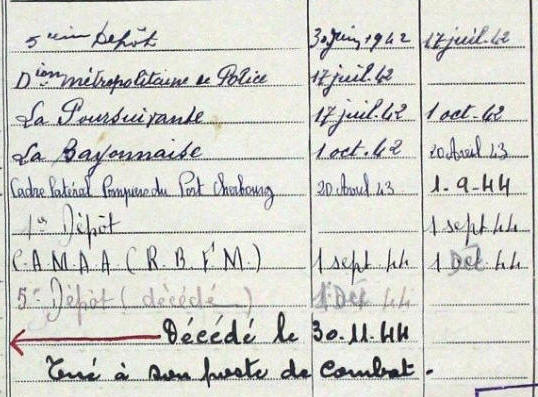 5ème Dépôt 30 Juin 1942 17 juil. 42
Dion métropolitaine de Police 17 juil. 42
La Poursuivante 17 juil. 42 1 oct. 42
La Bayonnaise 1 oct. 42 20 Avril 43
Cadre latéral Pompiers du Port Cherbourg 20 Avril 43 1-9-44
1er Dépôt 1 sept 44
C.A.M.A.A. (R.B.F.M.) 1 sept 44 1 Déc 44
5e Dépôt (décédé) 1 Déc 44
Décédé le 30.11.44
Tué à son poste de combat.